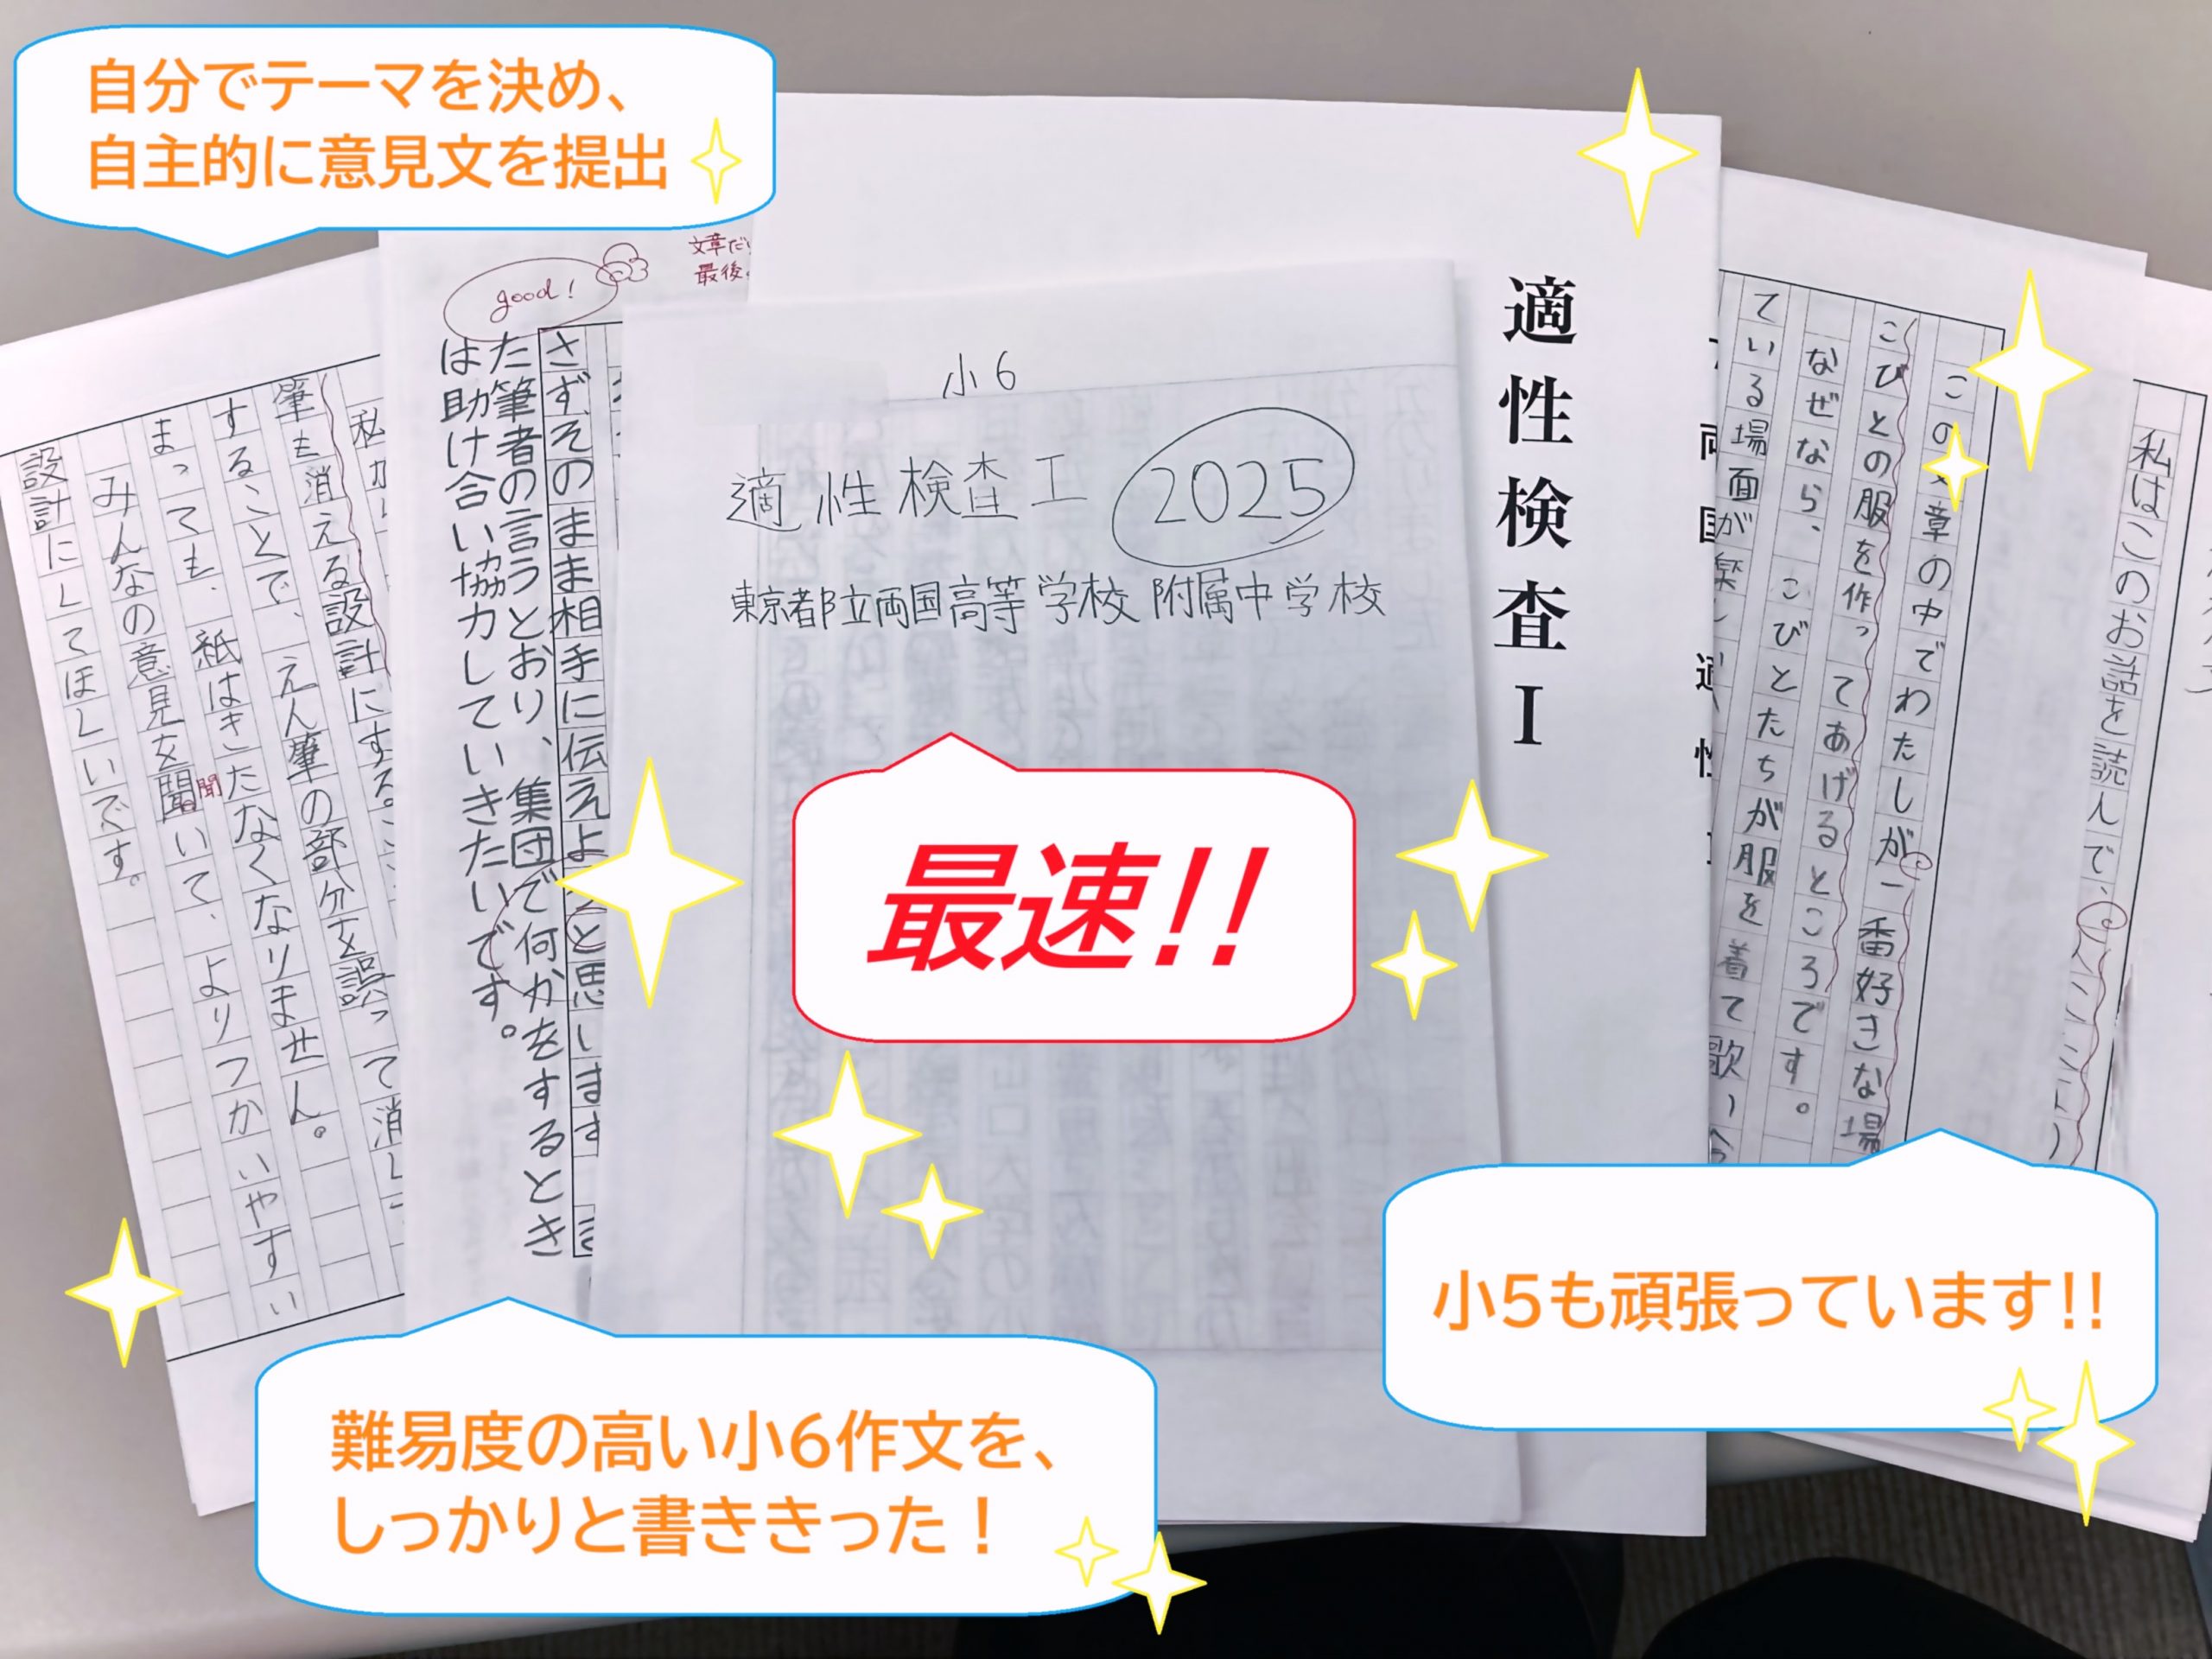 自分でテーマを決め、
自主的に意見文を提出
good!
文章だ
最後
小6
適性検査Ⅰ 2025
東京都立両国高等学校附属中学校
適性検査Ⅰ
最速!!
難易度の高い小6作文を、
しっかりと書ききった！
小5も頑張っています!!
私はこのお話を読んで、
この文章の中でわたしが一番好きな場
こびとの服を作ってあげるところです。
なぜなら、こびとたちが服を
ている場面が楽し
着て歌い
さず、そのまま相手に伝えようと思います
た筆者の言うとおり、集団で何かをするとき
は助け合い協力していきたいです。
筆も消える設計にする
することで、えん筆の部分を誤って消し
まっても、紙はきたなくなりません。
みんなの意見を聞いて、よりつかいやすい
聞
設計にしてほしいです。